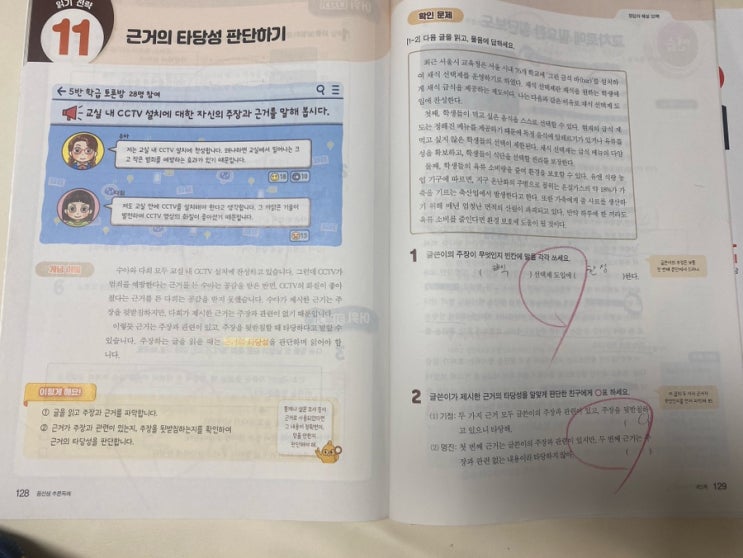 읽기 전략
11 근거의 타당성 판단하기
5반 학급 토론방 28명 참여
교실 내 CCTV 설치에 대한 자신의 주장과 근거를 말해 봅시다.
수아
저는 교실 내 CCTV 설치에 찬성합니다. 왜냐하면 교실에서 일어나는 크
고 작은 범죄를 예방하는 효과가 있기 때문입니다.
18
19
다희
저도 교실 안에 CCTV를 설치해야 한다고 생각합니다. 그 까닭은 기술이
발전하여 CCTV 영상의 화질이 좋아졌기 때문입니다.
13
개념 이해
수아와 다희 모두 교실 내 CCTV 설치에 찬성하고 있습니다. 그런데 CCTV가
범죄를 예방한다는 근거를 든 수아는 공감을 받은 반면, CCTV의 화질이 좋아
졌다는 근거를 든 다희는 공감을 받지 못했습니다. 수아가 제시한 근거는 주
장을 뒷받침하지만, 다희가 제시한 근거는 주장과 관련이 없기 때문입니다.
이렇듯 근거는 주장과 관련이 있고, 주장을 뒷받침할 때 타당하다고 말할 수
있습니다. 주장하는 글을 읽을 때는 근거의 타당성을 판단하며 읽어야 합니
다.
이렇게 해요!
① 글을 읽고 주장과 근거를 파악합니다.
② 근거가 주장과 관련이 있는지, 주장을 뒷받침하는지를 확인하여
근거의 타당성을 판단합니다.
통계나 설문 조사 등이
근거로 사용되었다면
그 내용이 정확한지,
믿을 만한지
판단해야 해.
128 용선생 추론독해
확인 문제
정답과 해설 22쪽
[1~2] 다음 글을 읽고, 물음에 답하세요.
최근 서울시 교육청은 서울 시내 76개 학교에 그린 급식 바(bar)를 설치하
여 채식 선택제를 운영하기로 하였다. 채식 선택제란 채식을 원하는 학생에
게 채식 급식을 제공하는 제도이다. 나는 다음과 같은 이유로 채식 선택제 도
입에 찬성한다.
첫째, 학생들이 먹고 싶은 음식을 스스로 선택할 수 있다. 현재의 급식 제
도는 정해진 메뉴를 제공하기 때문에 특정 음식에 알레르기가 있거나 육류를
먹고 싶지 않은 학생들의 선택이 제한된다. 채식 선택제는 급식 메뉴의 다양
성을 확보하고, 학생들이 식단을 선택할 권리를 보장한다.
둘째, 학생들의 육류 소비량을 줄여 환경을 보호할 수 있다. 유엔 식량 농
업 기구에 따르면, 지구 온난화의 주범으로 꼽히는 온실가스의 약 18%가 가
축을 기르는 축산업에서 발생한다고 한다. 또한 가축에게 줄 사료를 생산하
기 위해 매년 엄청난 면적의 산림이 파괴되고 있다. 만약 하루에 한 끼라도
육류 소비를 줄인다면 환경 보호에 도움이 될 것이다.
1 글쓴이의 주장이 무엇인지 빈칸에 알맞은 말을 각각 쓰세요.
( 채식 ) 선택제 도입에 ( 찬성 )한다.
2 글쓴이가 제시한 근거의 타당성을 알맞게 판단한 친구에게 ○표 하세요.
(1) 기정: 두 가지 근거 모두 글쓴이의 주장과 관련이 있고, 주장을 뒷받침하
고 있으니 타당해. ( ○ )
(2) 명진: 첫 번째 근거는 글쓴이의 주장과 관련이 있지만, 두 번째 근거는 주
장과 관련 없는 내용이라 타당하지 않아. ( )
129